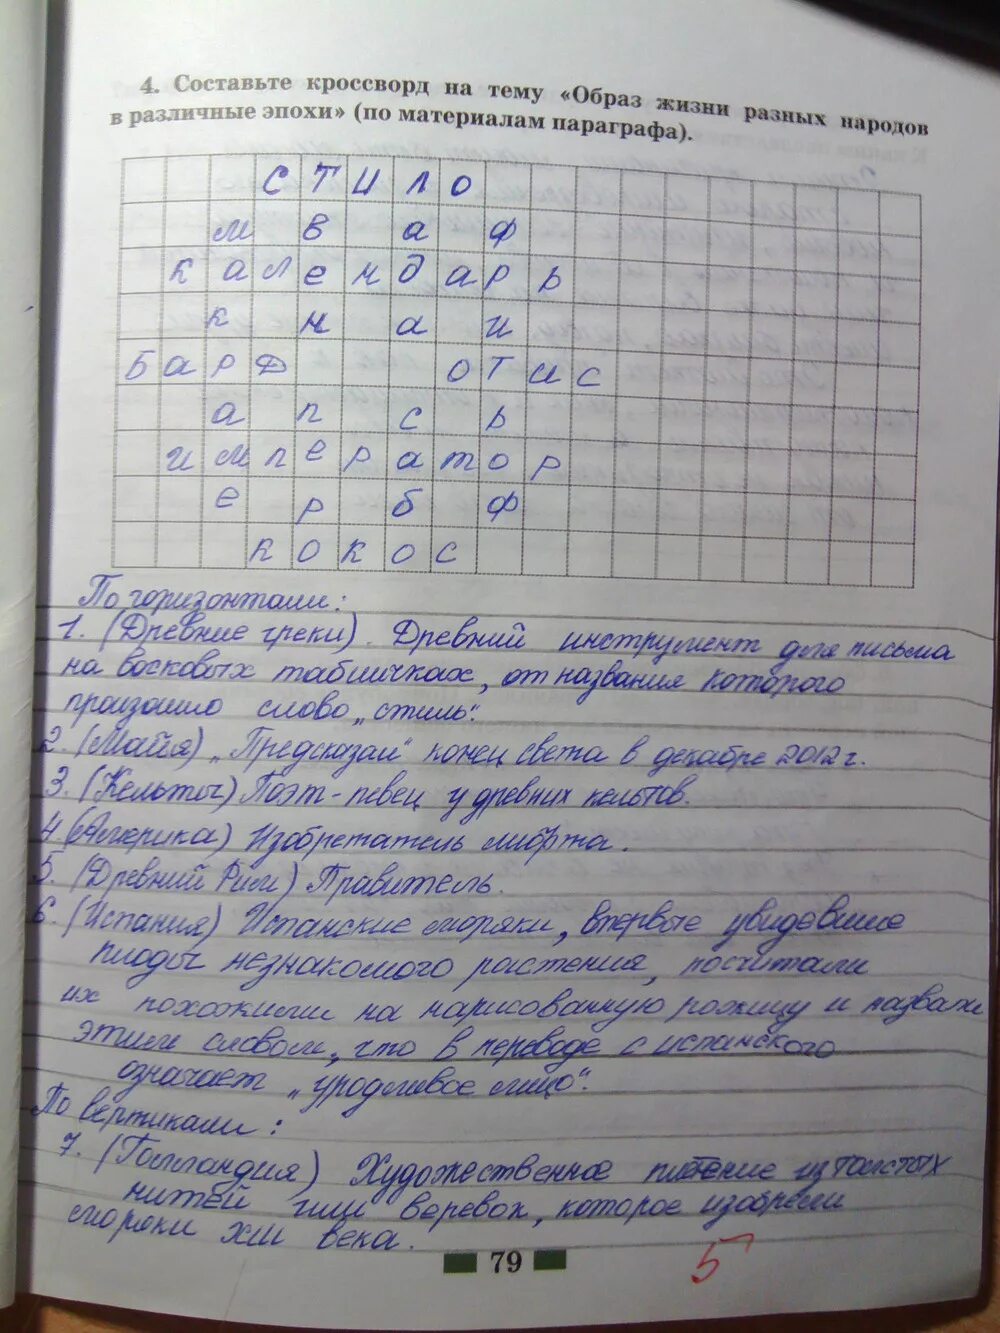 4. Составьте кроссворд на тему «Образ жизни разных народов
в различные эпохи» (по материалам параграфа).
С Т И Л О
м в а ф
к а л е н д а р ь
к н а и
Б а р д о т и с
а п с ь
и м п е р а т о р
е р б ф
к о к о с
По горизонтали:
1. (Древние греки). Древний инструмент для письма
на восковых табличках, от названия которого
произошло слово „стиль".
2. (Майя) „Предсказал" конец света в декабре 2012 г.
3. (Кельты) Поэт-певец у древних кельтов.
4. (Америка) Изобретатель лифта.
5. (Древний Рим) Правитель.
6. (Испания) Испанские моряки, впервые увидевшие
плоды незнакомого растения, посчитали
их похожими на нарисованную рожицу и назвали
этим словом, что в переводе с испанского
означает „уродливое лицо".
По вертикали:
7. (Голландия) Художественное плетение из толстых
нитей или веревок, которое изобрели
моряки XIII века.
79
5